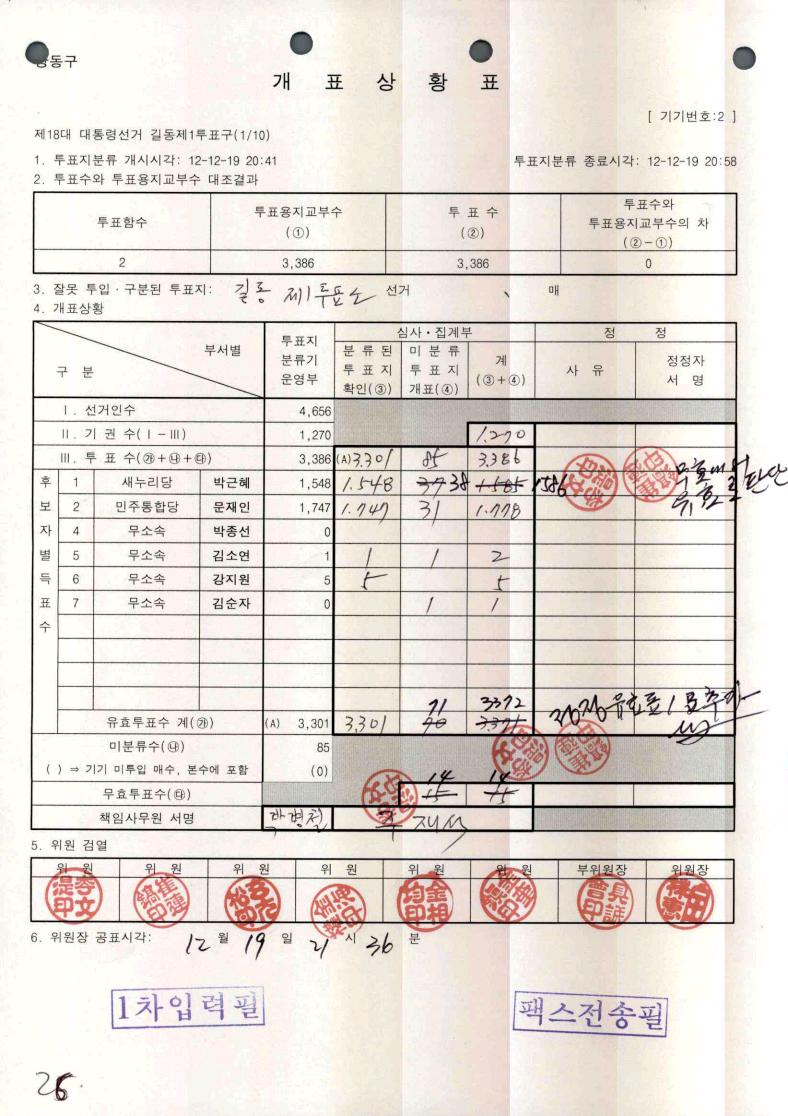 강동구
개 표 상 황 표
[ 기기번호:2 ]
제18대 대통령선거 길동제1투표구(1/10)
1. 투표지분류 개시시각: 12-12-19 20:41 투표지분류 종료시각: 12-12-19 20:58
2. 투표수와 투표용지교부수 대조결과
투표함수 투표용지교부수 (①) 투 표 수 (②) 투표수와 투표용지교부수의 차 (②-①)
2 3,386 3,386 0
3. 잘못 투입·구분된 투표지: 길동 제1투표소 선거 매
4. 개표상황
구 분 부서별 투표지 분류기 운영부 심사·집계부 정 정
분류된 투표지 확인(③) 미분류 투표지 개표(④) 계 (③+④) 사 유 정정자 서 명
Ⅰ. 선거인수 4,656
Ⅱ. 기 권 수(Ⅰ-Ⅲ) 1,270 1.270
Ⅲ. 투 표 수(㉮+㉯+㉰) 3,386 (A)3.301 85 3.386
후보자별득표수
1 새누리당 박근혜 1,548 1.548 37 38 1.585 1586 무효에서 유효로 판단
2 민주통합당 문재인 1,747 1.747 31 1.778
4 무소속 박종선 0
5 무소속 김소연 1 1 1 2
6 무소속 강지원 5 5 5
7 무소속 김순자 0 1 1
유효투표수 계(㉮) (A) 3,301 3.301 70 71 3.371 3372 정정 유효표 1 표추가
미분류수(㉯) 85
( ) ⇒ 기기 미투입 매수, 본수에 포함 (0)
무효투표수(㉰) 15 14 15 14
책임사무원 서명
5. 위원 검열
위 원 위 원 위 원 위 원 위 원 위 원 부위원장 위원장
6. 위원장 공표시각: 12 월 19 일 21 시 36 분
1차입력필
팩스전송필
26